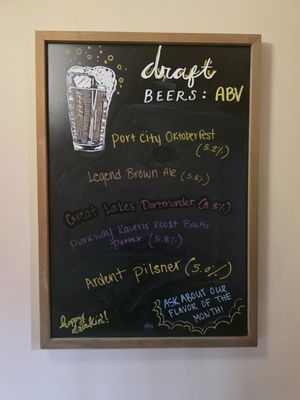 draft
BEERS: ABV
Port City Oktoberfest
(5.2%)
Legend Brown Ale (5.8%)
Great Lakes Dortmunder (5.8%)
Parkway Ravens Roost Baltic
Porter (5.8%)
Ardent Pilsner (5.0%)
happy
drinkin'!
ASK ABOUT OUR
FLAVOR OF THE
MONTH!